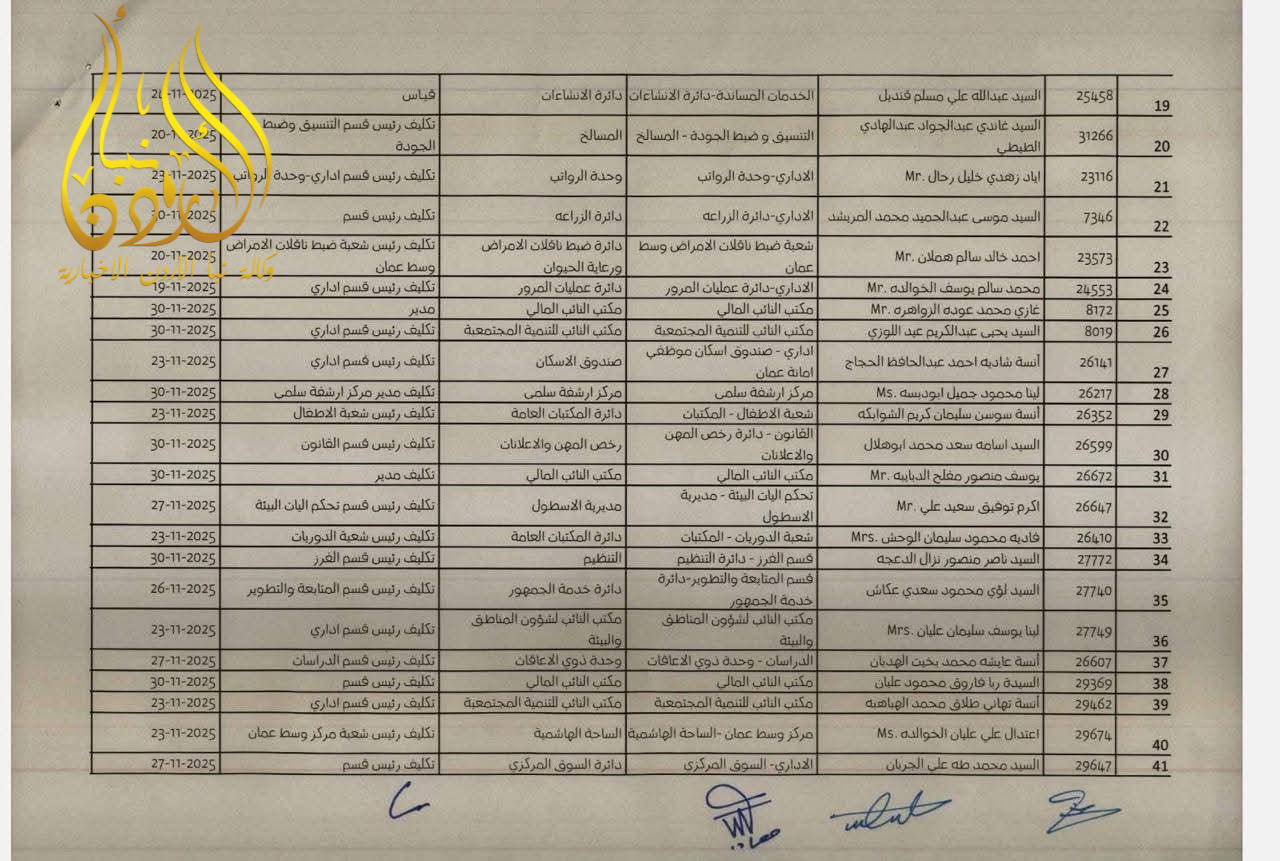 19 25458 السيد عبدالله علي مسلم قنديل الخدمات المساندة-دائرة الانشاءات دائرة الانشاءات قياس
20 31266 السيد غاندي عبدالجواد عبدالهادي الطيطي التنسيق و ضبط الجودة - المسالخ المسالخ تكليف رئيس قسم التنسيق وضبط الجودة
21 23116 Mr. اياد زهدي خليل رحال الاداري-وحدة الرواتب وحدة الرواتب تكليف رئيس قسم اداري-وحدة الرواتب 23-11-2025
22 7346 السيد موسى عبدالحميد محمد المريشد الاداري-دائرة الزراعه دائرة الزراعه تكليف رئيس قسم 30-11-2025
23 23573 Mr. احمد خالد سالم هملان شعبة ضبط ناقلات الامراض وسط عمان دائرة ضبط ناقلات الامراض ورعاية الحيوان تكليف رئيس شعبة ضبط ناقلات الامراض وسط عمان 20-11-2025
24 24553 Mr. محمد سالم يوسف الخوالده الاداري-دائرة عمليات المرور دائرة عمليات المرور تكليف رئيس قسم اداري 19-11-2025
25 8172 Mr. غازي محمد عوده الزواهره مكتب النائب المالي مكتب النائب المالي مدير 30-11-2025
26 8019 السيد يحيى عبدالكريم عيد اللوزي مكتب النائب للتنمية المجتمعية مكتب النائب للتنمية المجتمعية تكليف رئيس قسم اداري 30-11-2025
27 26141 أنسة شاديه احمد عبدالحافظ الحجاج اداري - صندوق اسكان موظفي امانة عمان صندوق الاسكان تكليف رئيس قسم اداري 23-11-2025
28 26217 Ms. لينا محمود جميل ابودبسه مركز ارشفة سلمى مركز ارشفة سلمى تكليف مدير مركز ارشفة سلمى 30-11-2025
29 26352 أنسة سوسن سليمان كريم الشوابكه شعبة الاطفال - المكتبات دائرة المكتبات العامة تكليف رئيس شعبة الاطفال 23-11-2025
30 26599 السيد اسامه سعد محمد ابوهلال القانون - دائرة رخص المهن والاعلانات رخص المهن والاعلانات تكليف رئيس قسم القانون 30-11-2025
31 26672 Mr. يوسف منصور مفلح الدبايبه مكتب النائب المالي مكتب النائب المالي تكليف مدير 30-11-2025
32 26647 Mr. اكرم توفيق سعيد علي تحكم اليات البيئة - مديرية الاسطول مديرية الاسطول تكليف رئيس قسم تحكم اليات البيئة 27-11-2025
33 26410 Mrs. فاديه محمود سليمان الوحش شعبة الدوريات - المكتبات دائرة المكتبات العامة تكليف رئيس شعبة الدوريات 23-11-2025
34 27772 السيد ناصر منصور نزال الدعجه قسم الفرز - دائرة التنظيم التنظيم تكليف رئيس قسم الفرز 30-11-2025
35 27740 السيد لؤي محمود سعدي عكاش قسم المتابعة والتطوير-دائرة خدمة الجمهور دائرة خدمة الجمهور تكليف رئيس قسم المتابعة والتطوير 26-11-2025
36 27749 Mrs. لينا يوسف سليمان عليان مكتب النائب لشؤون المناطق والبيئة مكتب النائب لشؤون المناطق والبيئة تكليف رئيس قسم اداري 23-11-2025
37 26607 أنسة عايشه محمد بخيت الهدبان الدراسات - وحدة ذوي الاعاقات وحدة ذوي الاعاقات تكليف رئيس قسم الدراسات 27-11-2025
38 29369 السيدة ربا فاروق محمود عليان مكتب النائب المالي مكتب النائب المالي تكليف رئيس قسم 30-11-2025
39 29462 أنسة تهاني طلاق محمد الهباهبه مكتب النائب للتنمية المجتمعية مكتب النائب للتنمية المجتمعية تكليف رئيس قسم اداري 23-11-2025
40 29674 Ms. اعتدال علي عليان الخوالده مركز وسط عمان -الساحة الهاشمية الساحة الهاشمية تكليف رئيس شعبة مركز وسط عمان 23-11-2025
41 29647 السيد محمد طه علي الجربان الاداري- السوق المركزي دائرة السوق المركزي تكليف رئيس قسم 27-11-2025
نبأ الأردن
وكالة نبأ الأردن الاخبارية